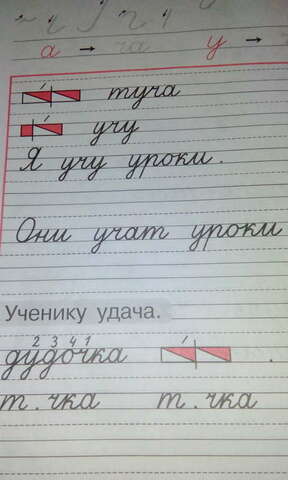 а → ча у →
туча
учу
Я учу уроки.
Они учат уроки
Ученику удача.
2 3 4 1
дудочка .
т.чка т.чка